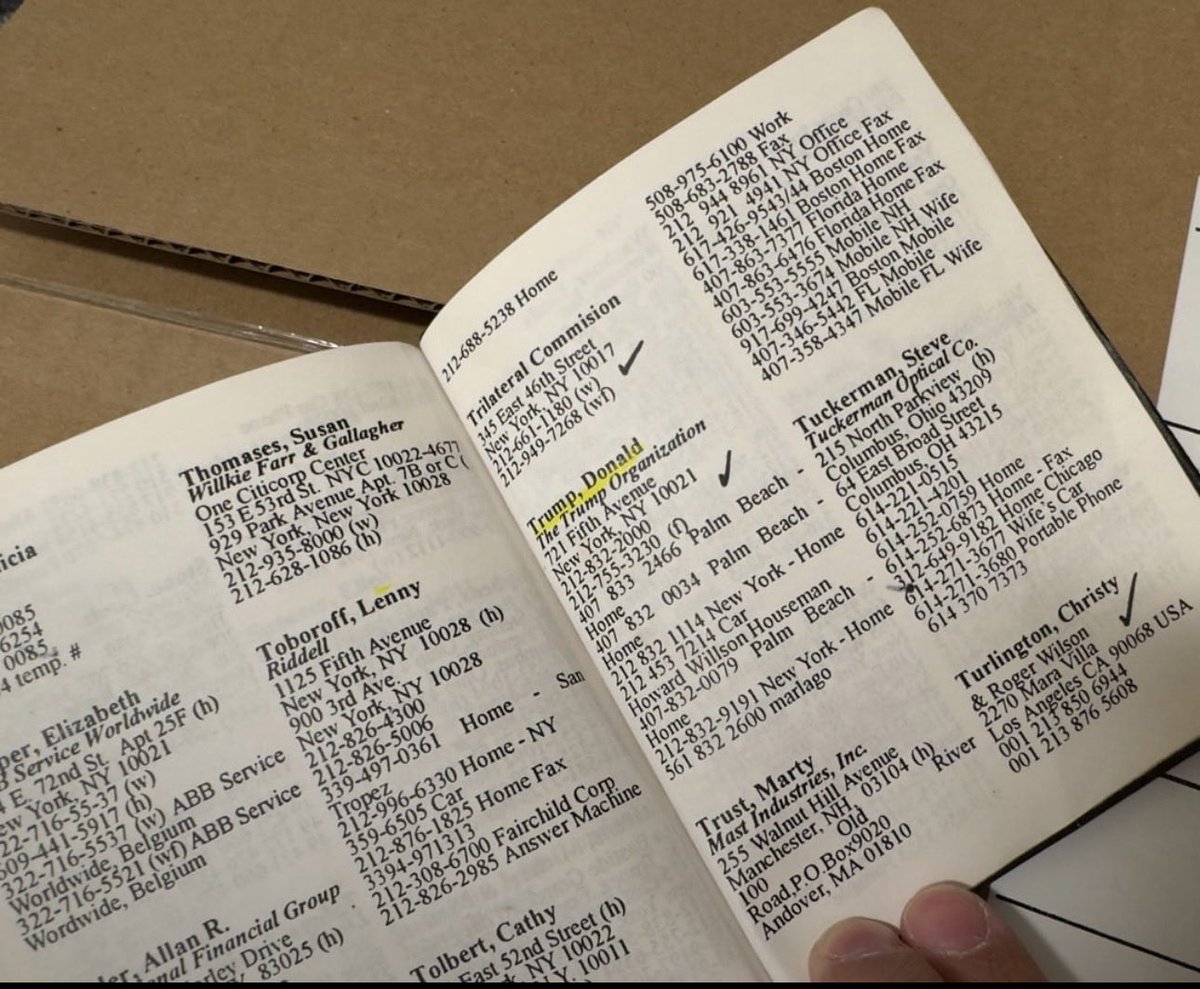 icia
0085
6254
0085
4 temp. #
per, Elizabeth
Service Worldwide
E. 72nd St. Apt 25F (h)
ew York, NY 10021
22-716-55-37 (w)
609-441-5917 (h)
322-716-5537 (w) ABB Service
Worldwide, Belgium
322-716-5521 (wf) ABB Service
Wordwide, Belgium
der, Allan R.
onal Financial Group
orley Drive
83025 (h)
Thomases, Susan
Willkie Farr & Gallagher
One Citicorp Center
153 E 53rd St. NYC 10022-4677
929 Park Avenue Apt. 7B or C (
New York, New York 10028
212-935-8000 (w)
212-628-1086 (h)
Toboroff, Lenny
Riddell
1125 Fifth Avenue
New York, NY 10028 (h)
900 3rd Ave.
New York, NY 10028
212-826-4300
212-826-5006
339-497-0361 Home - San
Tropez
212-996-6330 Home - NY
359-6505 Car
212-876-1825 Home Fax
3394-971313
212-308-6700 Fairchild Corp
212-826-2985 Answer Machine
Tolbert, Cathy
East 52nd Street (h)
NY 10022
N.Y. 10011
212-688-5238 Home
Trilateral Commision
345 East 46th Street
New York, NY 10017
212-661-1180 (w)
212-949-7268 (wf)
Trump, Donald
The Trump Organization
721 Fifth Avenue
New York, NY 10021
212-832-2000
212-755-3230 (f)
407 833 2466 Palm Beach -
Home
407 832 0034 Palm Beach -
Home
212 832 1114 New York - Home
212 453 7214 Car
Howard Willson Houseman
407-832-0079 Palm Beach -
Home
212-832-9191 New York - Home
561 832 2600 marlago
Trust, Marty
Mast Industries, Inc.
255 Walnut Hill Avenue
Manchester, NH, 03104 (h)
100 Old River
Road,P.O.Box9020
Andover, MA 01810
508-975-6100 Work
508-683-2788 Fax
212 944 8961 NY Office
212 921 4941 NY Office Fax
617-426-9543/44 Boston Home
617-338-1461 Boston Home Fax
407-863-7377 Florida Home
407-863-6476 Florida Home Fax
603-553-5555 Mobile NH
603-553-3674 Mobile NH Wife
917-699-4247 Boston Mobile
407-346-5442 FL Mobile
407-358-4347 Mobile FL Wife
Tuckerman, Steve
Tuckerman Optical Co.
215 North Parkview (h)
Columbus, Ohio 43209
64 East Broad Street
Columbus, OH 43215
614-221-0515
614-221-4201
614-252-0759 Home
614-252-6873 Home - Fax
312-649-9182 Home Chicago
614-271-3677 Wife's Car
614-271-3680 Portable Phone
614 370 7373
Turlington, Christy
& Roger Wilson
2270 Mara Villa
Los Angeles CA 90068 USA
001 213 850 6944
001 213 876 5608